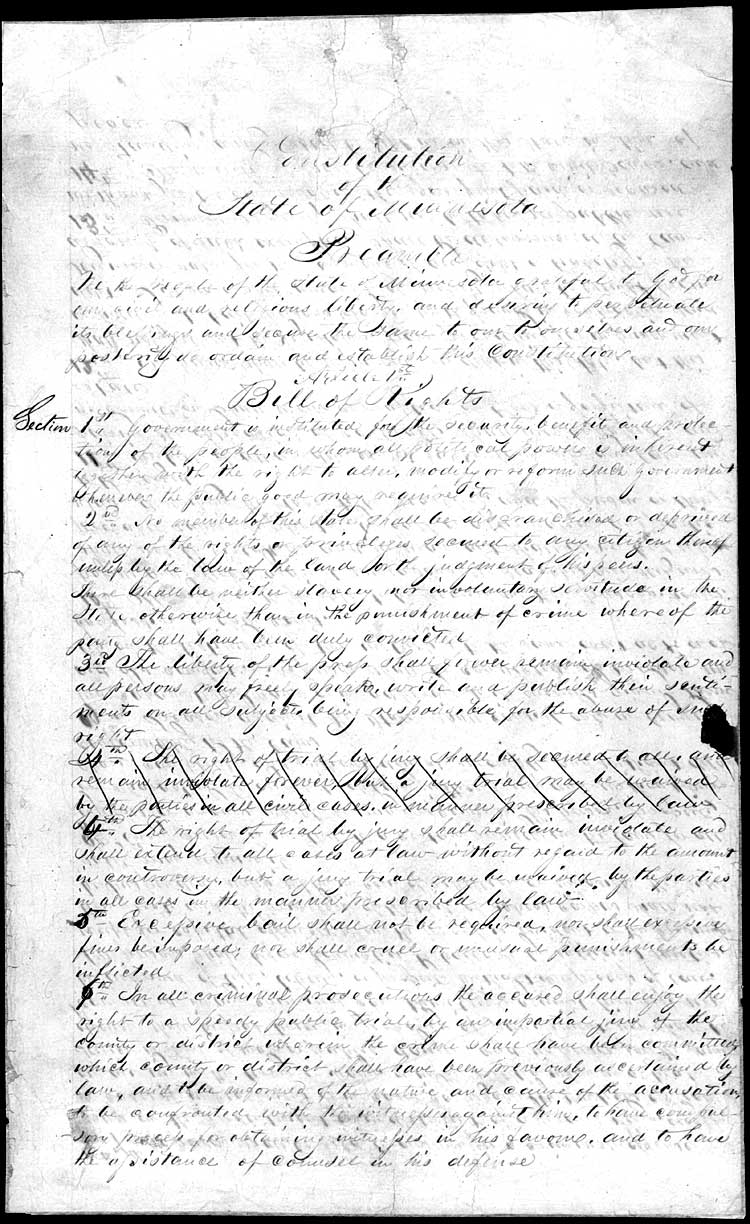 Constitution
of the
State of Minnesota
Preamble
We the People of the State of Minnesota grateful to God for
our civil and religious liberty, and desiring to perpetuate
its blessings and secure the same to our to ourselves and our
posterity do ordain and establish this Constitution
Article 1st
Bill of Rights
Section 1st Government is instituted for the security, benefit and protec-
tion of the people, in whom all political power is inherent
together with the right to alter, modify or reform such government
whenever the public good may require it.
2nd No member of this State shall be disfranchised or deprived
of any of the rights or privileges secured to any citizen thereof
unless by the law of the land or the judgment of his peers.
There shall be neither slavery nor involuntary servitude in the
State otherwise than in the punishment of crime whereof the
party shall have been duly convicted
3rd The liberty of the press shall forever remain inviolate and
all persons may freely speak, write and publish their senti-
ments on all subjects, being responsible for the abuse of such
right
4th The right of trial by jury shall be secured to all, and
remain inviolate forever, But a jury trial may be waived
by the parties in all civil cases, in manner prescribed by law
4th The right of trial by jury shall remain inviolate and
shall extend to all cases at law without regard to the amount
in controversy, but a jury trial may be waived by the parties
in all cases in the manner prescribed by law
5th Excessive bail shall not be required, nor shall excessive
fines be imposed, nor shall cruel or unusual punishments be
inflicted
6th In all criminal prosecutions the accused shall enjoy the
right to a speedy public trial, by an impartial jury of the
county or district wherein the crime shall have been committed,
which county or district shall have been previously ascertained by
law, and to be informed of the nature and cause of the accusation,
to be confronted with the witnesses against him, to have compul-
sory process for obtaining witnesses in his favour, and to have
the assistance of counsel in his defense